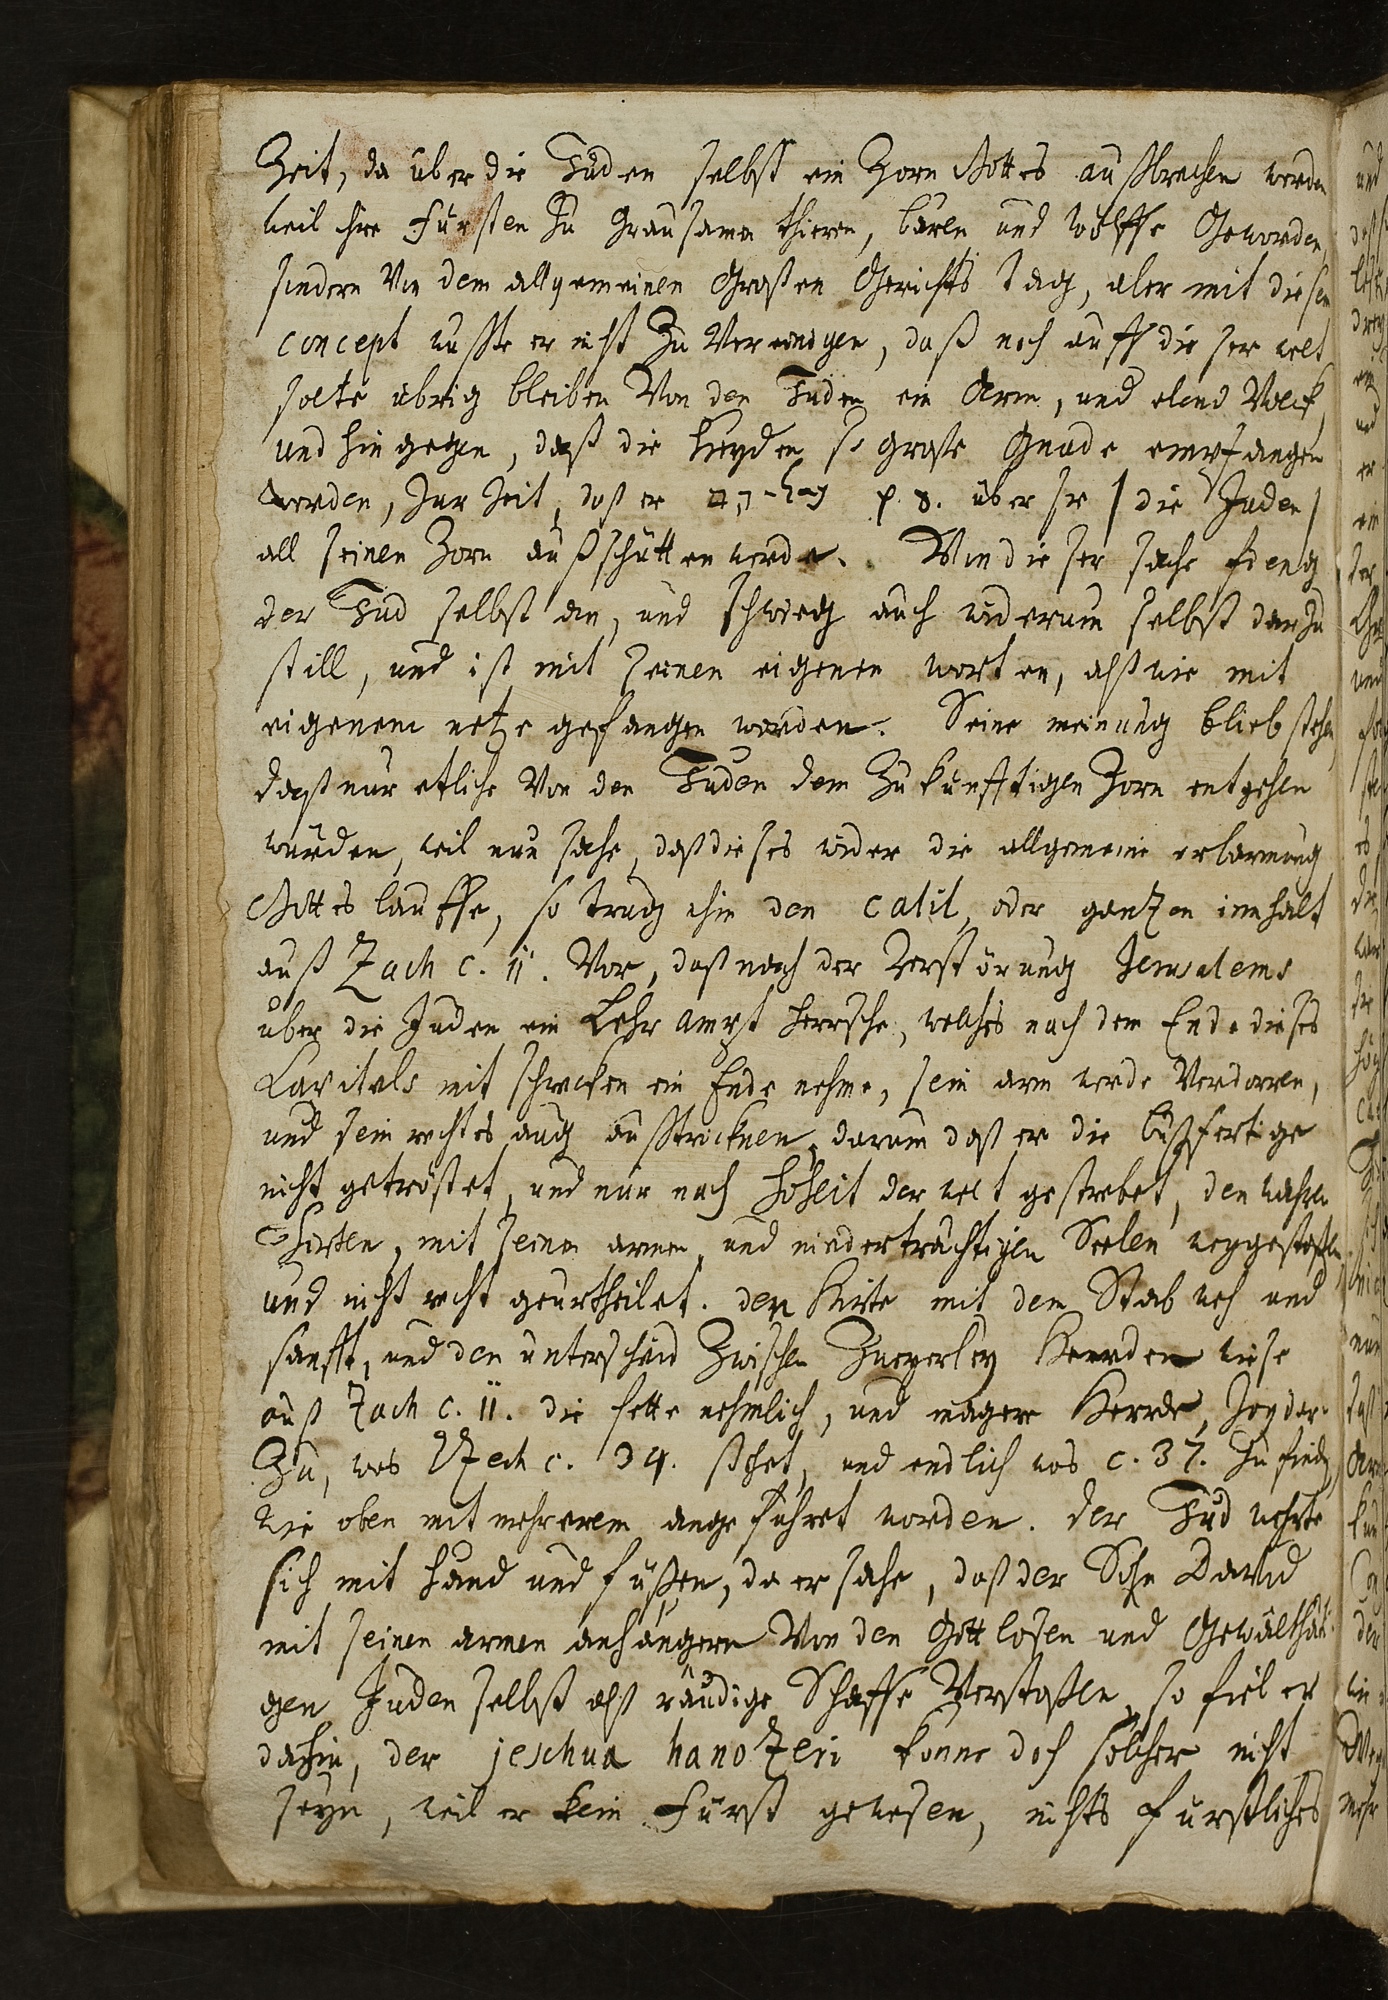 Zeit, da über die Juden selbst ein Zorn Gottes außbrechen werde
weil ihre Fürsten zu grausamen thieren, bären, und wölffe geworden,
sondern von dem allgemeinen Großen Gerichts tag, aber mit diesem
concept wuste er nicht zu vereinigen, daß noch auff dieser welt
solte übrig bleiben von den Juden ein Arm, und elend Volck
und hingegen, daß die Heyden so große Gnade empfangen
werden, zur Zeit, daß er p. 8. über sie / die Juden /
all seinen Zorn außschütten werde. Von dieser sache fieng
der Jud selbst an, und schwieg auch widerum selbst darzu
still, und ist mit seinen eigenen worten, alß wie mit
eigenem netze gefangen worden. Seine meinung blieb stehen,
daß nur etliche von den Juden dem Zukünfftigen Zorn entgehen
würden, weil nun sahe, daß dieses wider die allgemeine erbarmung
Gottes lauffe, so trug ihm den calil, oder gantzen innhalt
auß Zach c. 11. vor, daß nach der Zerstörung Jerusalems
über die Juden ein Lehr ampt herrsche, welches nach dem Ende dieses
Capitels mit schrecken ein Ende nehme, sein arm werde verdorren,
und sein rechtes aug außtrocknen, darum daß er die bußfertige
nicht getröstet, und nur nach Hoheit der welt gestrebet, den wahren
Hirten, mit seinen armen, und niederträchtigen Seelen weggestoßen
und nicht recht geurtheilet. den Hirte mit dem Stab weh und
sanfft, und den unterscheid zwischen Zweyerley Heerden wiese
auß Zach c. 11. die fette nehmlich, und magere Heerde,
Zu, was Ezech c. 34. stehet, und endlich was c. 37. zu finden,
wie oben mit mehrerem angeführet worden. der Jud wehrte
sich mit Hand und füßen, da er sahe, daß der Sohn David
mit seinen armen anhängern von den Gottlosen und Gewalthäti-
gen Juden selbst alß räudige Schaffe verstoßen, so fiel er
dahin, der jeschua hanotzeri konne doch solcher nicht
seyn, weil er kein Fürst gewesen, nichts fürstliches